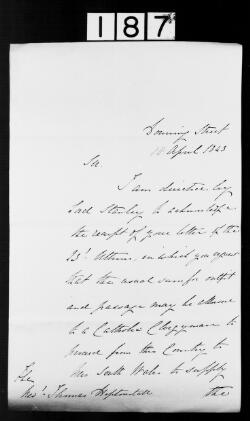 187
Downing Street
10 April 1843
Sir
I am directed by
Lord Stanley to acknowledge
the receipt of your letter of the
23d Ultimo, in which you request
that the usual sum for outfit
and passage may be allowed
to a Catholic Clergyman to
proceed from this Country to
New South Wales to supply
The the
Revd. Thomas Heptonstall